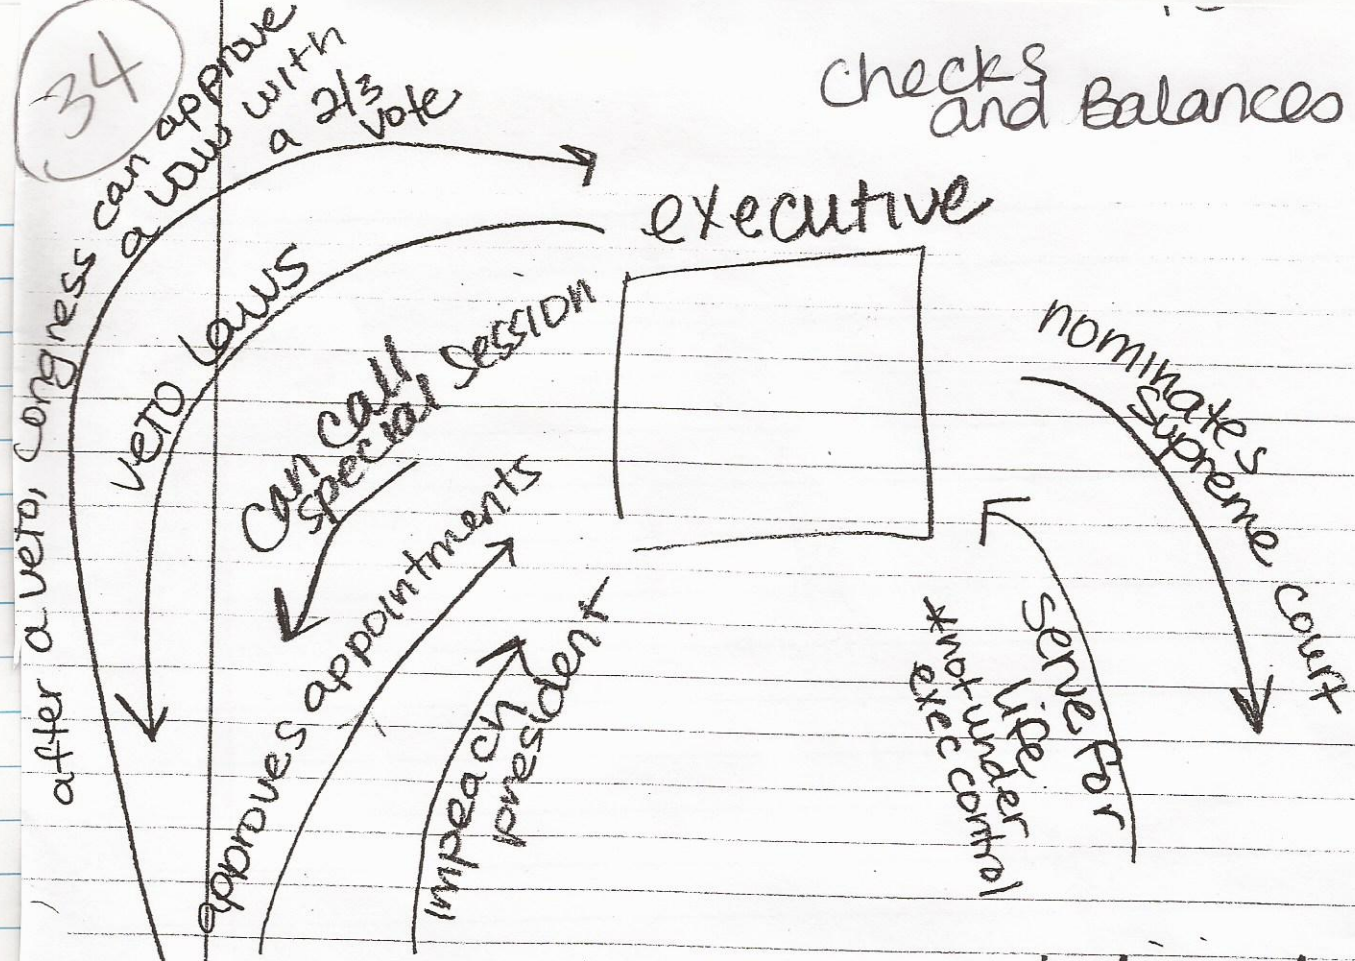 34
Checks
and Balances
after a veto, Congress can approve
a law with
a 2/3
vote
executive
veto laws
can call
special session
approves appointments
impeach
president
nominates
supreme court
serve for
life,
*not under
exec control